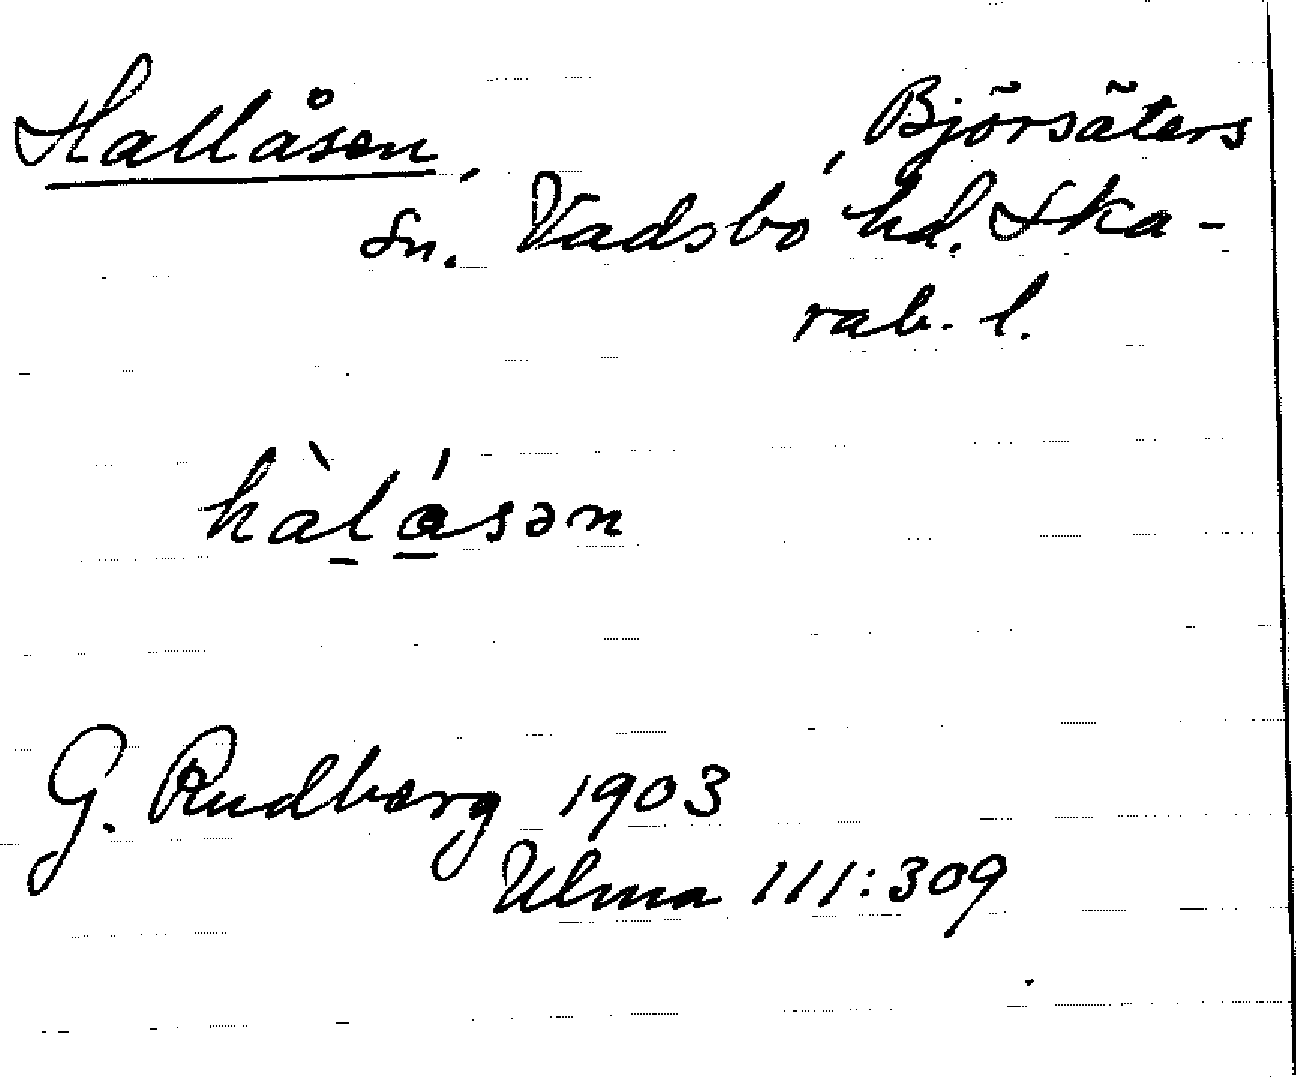 Hallåsen, Björsäters
sn. Vadsbo hd. Ska-
rab. l.
hàl̲á̲sən
G. Rudberg 1903
Ulma 111:309